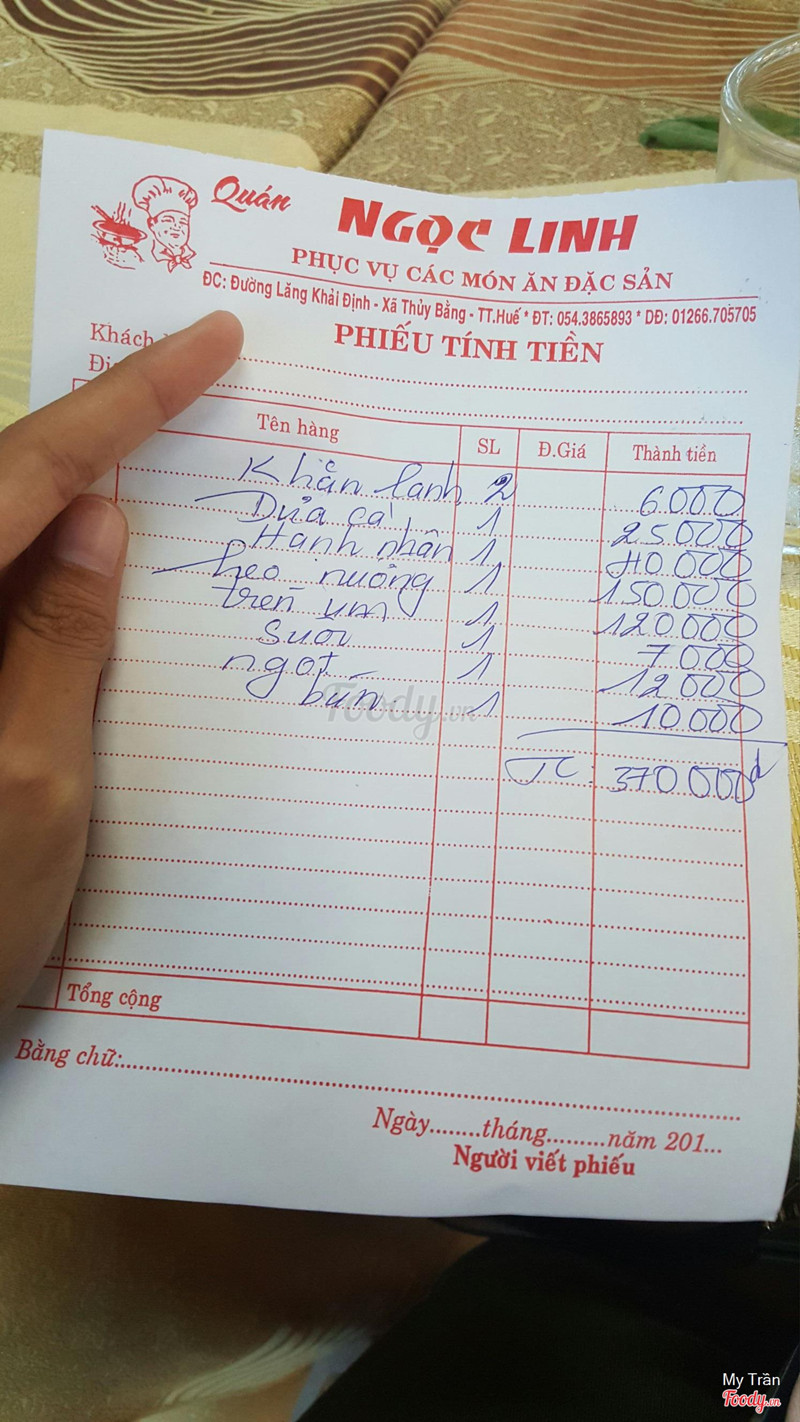 Quán
NGỌC LINH
PHỤC VỤ CÁC MÓN ĂN ĐẶC SẢN
ĐC: Đường Lăng Khải Định - Xã Thủy Bằng - TT.Huế * ĐT: 054.3865893 * DĐ: 01266.705705
PHIẾU TÍNH TIỀN
Khách
Đị
Tên hàng SL Đ.Giá Thành tiền
Khăn lanh 2 6000
Dứa ca 1 25000
Hanh nhân 1 40 000
heo nướng 1 150000
tren um 1 120000
Suối 1 7000
ngọt 1 12000
bún 1 10000
TC: 370 000đ
Foody.vn
Tổng cộng
Bằng chữ:
Ngày........tháng.........năm 201...
Người viết phiếu
My Trần
Foody.vn